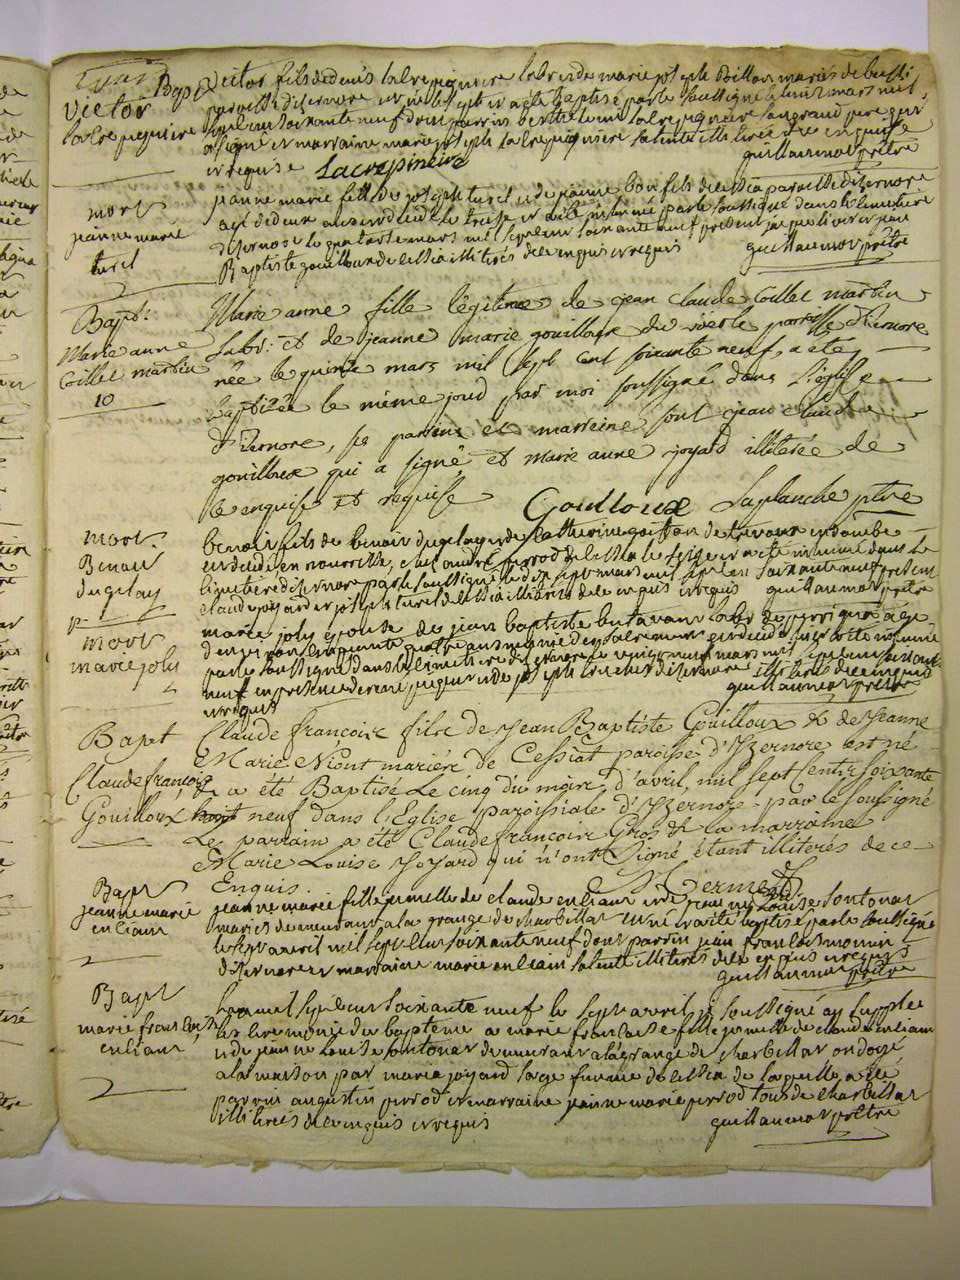 Bapt
Victor
Lacrepiniere
Victor fils de denis lacrepiniere labr et de marie josephte Billon mariés de bussi
paroisse d'izernore est né et a été Baptisé par le soussigné le mars mil
sept cent soixante neuf dont parrin lacrepiniere son grand pere qui
a signé et marraine marie josephte lacrepiniere sa tante illitérée de ce enquise
et requise Lacrepiniere guillaumot prêtre
mort
jeanne marie
turel
jeanne marie fille de joseph turel et de jeanne de cessia paroisse d'izernore
agé de deux ans est decedé le treize et a été inhumé par le soussigné dans le cimetiere
d'izernore le quatorze mars mil sept cent soixante neuf présent jacques et jean
Baptiste gouilloux de cessia illitérés de ce enquis et requis guillaumot prêtre
Bapt:
Marie anne
Collet mathieu
10
Marie anne fille légitime de jean claude Collet mathieu
labr: et de jeanne marie gouilloux de paroisse d'Izernore
née le quinze mars mil sept cent soixante neuf, a été
baptizée le même jour par moi soussigné dans l'église
d'Izernore, ses parrins et marreine sont jean claude
gouilloux qui a signé et marie anne joyard illitérée de
ce enquise et requise Gouilloux Laplanche ptre
mort.
Benoit
dugelay
benoit fils de benoit dugelay et de Catherine de trevoux en dombe
en nourrisse chez andré perrod de cessia le seize et a été inhumé dans le
cimetiere d'izernore par le soussigné le dix sept mars mil sept cent soixante neuf présent
claude joyard et joseph turel de cessia illitérés de ce enquis et requis guillaumot prêtre
mort
marie joly
marie joly epouse de jean baptiste butavant labr de perrignat agé
d'environ cinquante quatre ans munie des sacrements est decedé et a été inhumé
par le soussigné dans le cimetiere d'izernore le vingt neuf mars mil sept cent soixante
neuf en presence de rené et de joseph d'izernore illitérés de ce enquis
et requis guillaumot prêtre
Bapt
Claude françois
Gouilloux
Claude françois fils de Jean Baptiste Gouilloux & de Jeanne
Marie Niont mariés de Cessiat paroisse d'Yzernore est né
& a été Baptisé le cinq du moire d'avril, mil sept cents soixante
neuf dans l'Eglise paroissiale d'Yzernore par le soussigné
Le parrain a été Claude françois Gros & la marraine
Marie Louise Joyard qui n'ont Signé étant illiterés de ce
Enquis. Mermet
Bapt
jeanne marie
enliam
jeanne marie fille jumelle de claude enliam et de jeanne Louise fontenat
mariés demeurants a la grange de charbillat est né et a été baptisé par le soussigné
le sept avril mil sept cent soixante neuf dont parrin jean françois monnin
d'izernore et marraine marie enliam sa tante illitérés de ce enquis et requis
guillaumot prêtre
Bapt
marie françoise
enliam
L'an mil sept cent soixante neuf le sept avril je soussigné ay supplée
les ceremonies du bapteme a marie françoise fille jumelle de claude enliam
et de jeanne Louise fontenat demeurant a la grange de charbillat ondoyé
a la maison par marie joyard sage femme de cessia de laquelle a été
parrin augustin perrod et marraine jeanne marie perrod tous de charbillat
illitérés de ce enquis et requis guillaumot prêtre